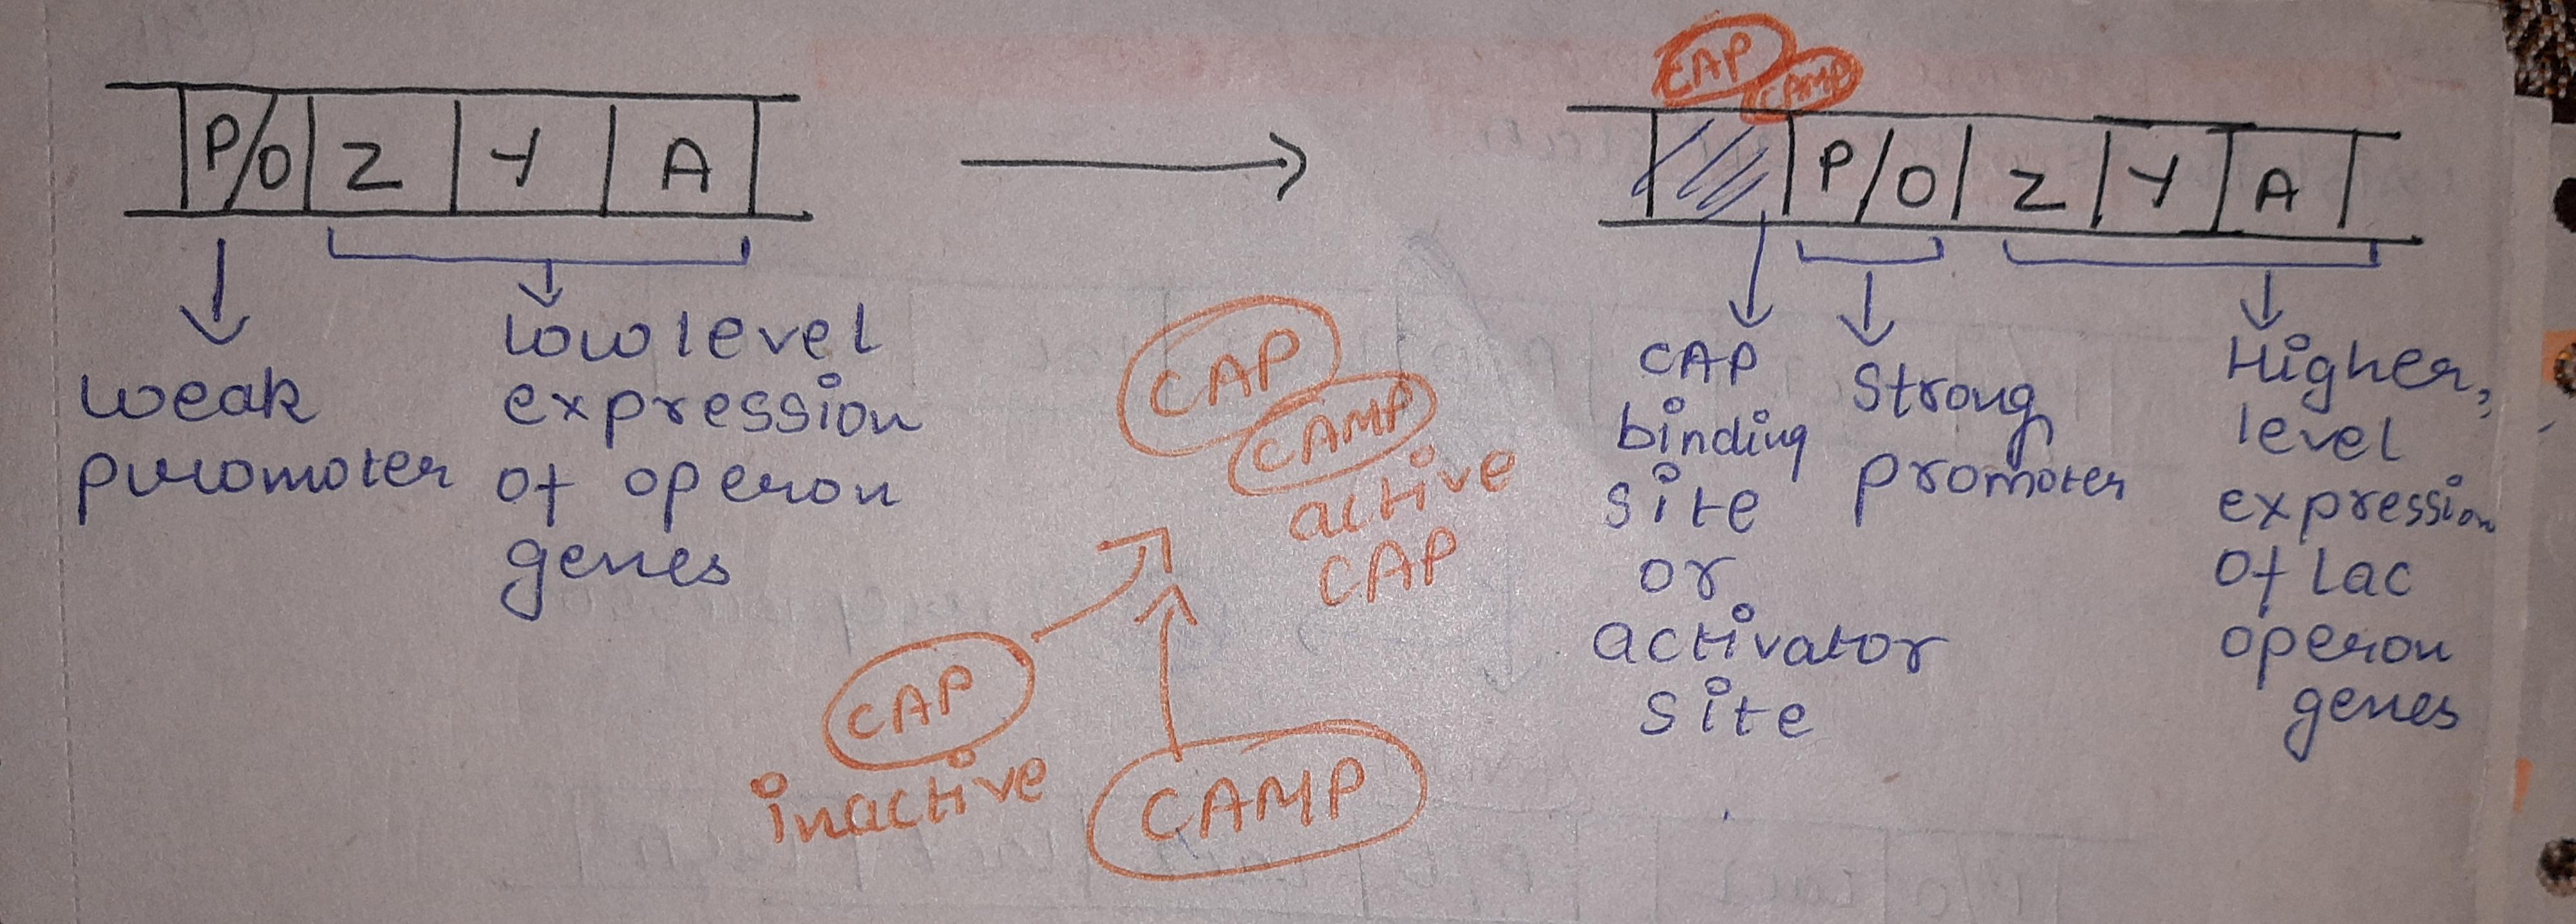 P/O Z Y A
weak
promoter
low level
expression
of operon
genes
CAP
CAMP
active
CAP
CAP
inactive
CAMP
CAP
CAMP
P/O Z Y A
CAP
binding
site
or
activator
site
Strong
promoter
Higher,
level
expression
of Lac
operon
genes